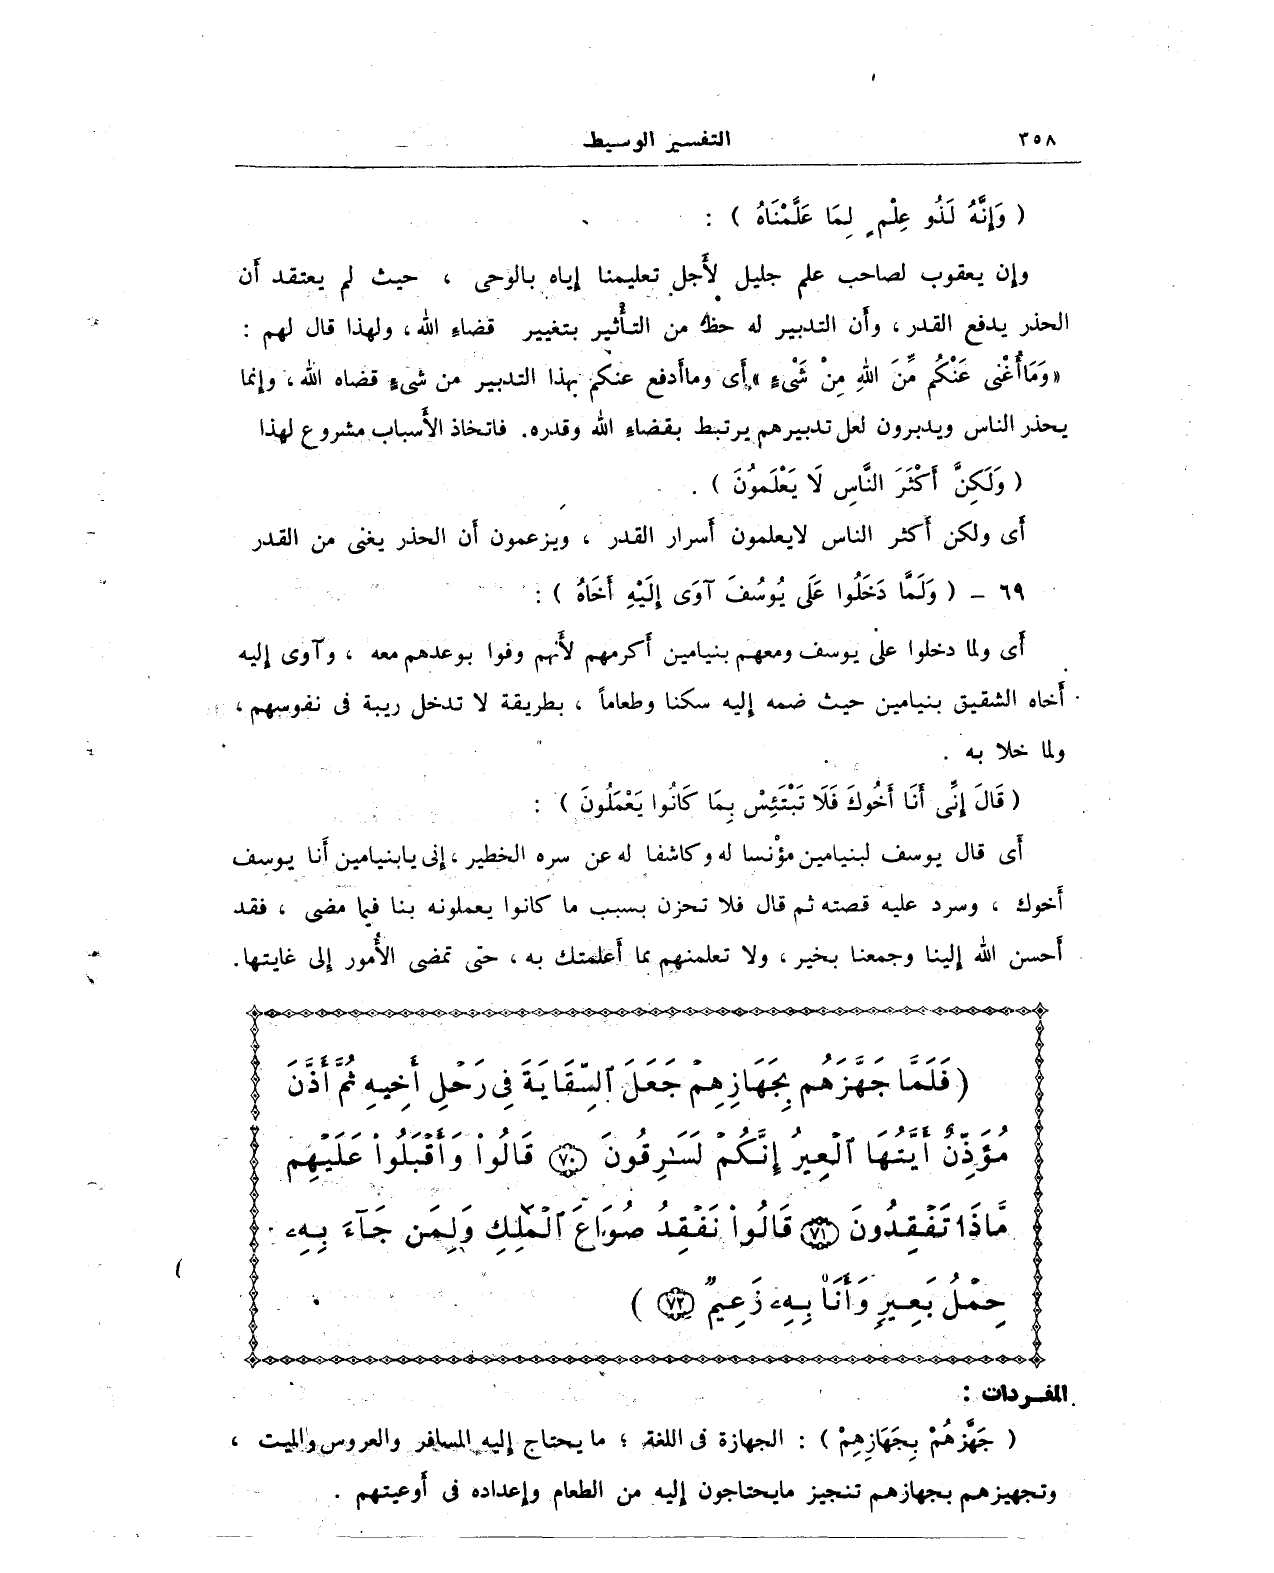 ٣٥٨
التفسير الوسيط
( وَإِنَّهُ لَذُو عِلْمٍ لِمَا عَلَّمْنَاهُ ) :
وإن يعقوب لصاحب علم جليل لأجل تعليمنا إياه بالوحى ، حيث لم يعتقد أن
الحذر يدفع القدر ، وأن التدبير له حظ من التأثير بتغيير قضاء الله ، ولهذا قال لهم :
«وَمَاأُغْنى عَنْكُم مِّنَ اللهِ مِنْ شَىْءٍ» أى وماأدفع عنكم بهذا التدبير من شىءٍ قضاه الله ، وإنما
يحذر الناس ويدبرون لعل تدبيرهم يرتبط بقضاء الله وقدره. فاتخاذ الأسباب مشروع لهذا
( وَلَكِنَّ أَكْثَرَ النَّاسِ لَا يَعْلَمُونَ ) .
أى ولكن أكثر الناس لايعلمون أسرار القدر ، ويزعمون أن الحذر يغنى من القدر
٦٩ - ( وَلَمَّا دَخَلُوا عَلَى يُوسُفَ آوَى إِلَيْهِ أَخَاهُ ) :
أى ولما دخلوا على يوسف ومعهم بنيامين أكرمهم لأنهم وفوا بوعدهم معه ، وآوى إليه
أخاه الشقيق بنيامين حيث ضمه إليه سكنا وطعاماً ، بطريقة لا تدخل ريبة فى نفوسهم ،
ولما خلا به .
( قَالَ إِنِّى أَنَا أَخُوكَ فَلَا تَبْتَئِسْ بِمَا كَانُوا يَعْمَلُونَ ) :
أى قال يوسف لبنيامين مؤنسا له وكاشفا له عن سره الخطير ، إنى يابنيامين أنا يوسف
أخوك ، وسرد عليه قصته ثم قال فلا تحزن بسبب ما كانوا يعملونه بنا فيما مضى ، فقد
أحسن الله إلينا وجمعنا بخير ، ولا تعلمنهم بما أعلمتك به ، حتى تمضى الأُمور إلى غايتها.
(فَلَمَّا جَهَّزَهُم بِجَهَازِهِمْ جَعَلَ ٱلسِّقَايَةَ فِى رَحْلِ أَخِيهِ ثُمَّ أَذَّنَ
مُؤَذِّنٌ أَيَّتُهَا ٱلْعِيرُ إِنَّكُمْ لَسَـٰرِقُونَ ﴿٧٠﴾ قَالُوا۟ وَأَقْبَلُوا۟ عَلَيْهِم
مَّاذَا تَفْقِدُونَ ﴿٧١﴾ قَالُوا۟ نَفْقِدُ صُوَاعَ ٱلْمَلِكِ وَلِمَن جَآءَ بِهِۦ
حِمْلُ بَعِيرٍ وَأَنَا۠ بِهِۦ زَعِيمٌ ﴿٧٢﴾ )
المفردات :
( جَهَّزهُمْ بِجَهَازِهِمْ ) : الجهازة فى اللغة ؛ ما يحتاج إليه المسافر والعروس والميت ،
وتجهيزهم بجهازهم تنجيز مايحتاجون إليه من الطعام وإعداده فى أوعيتهم .